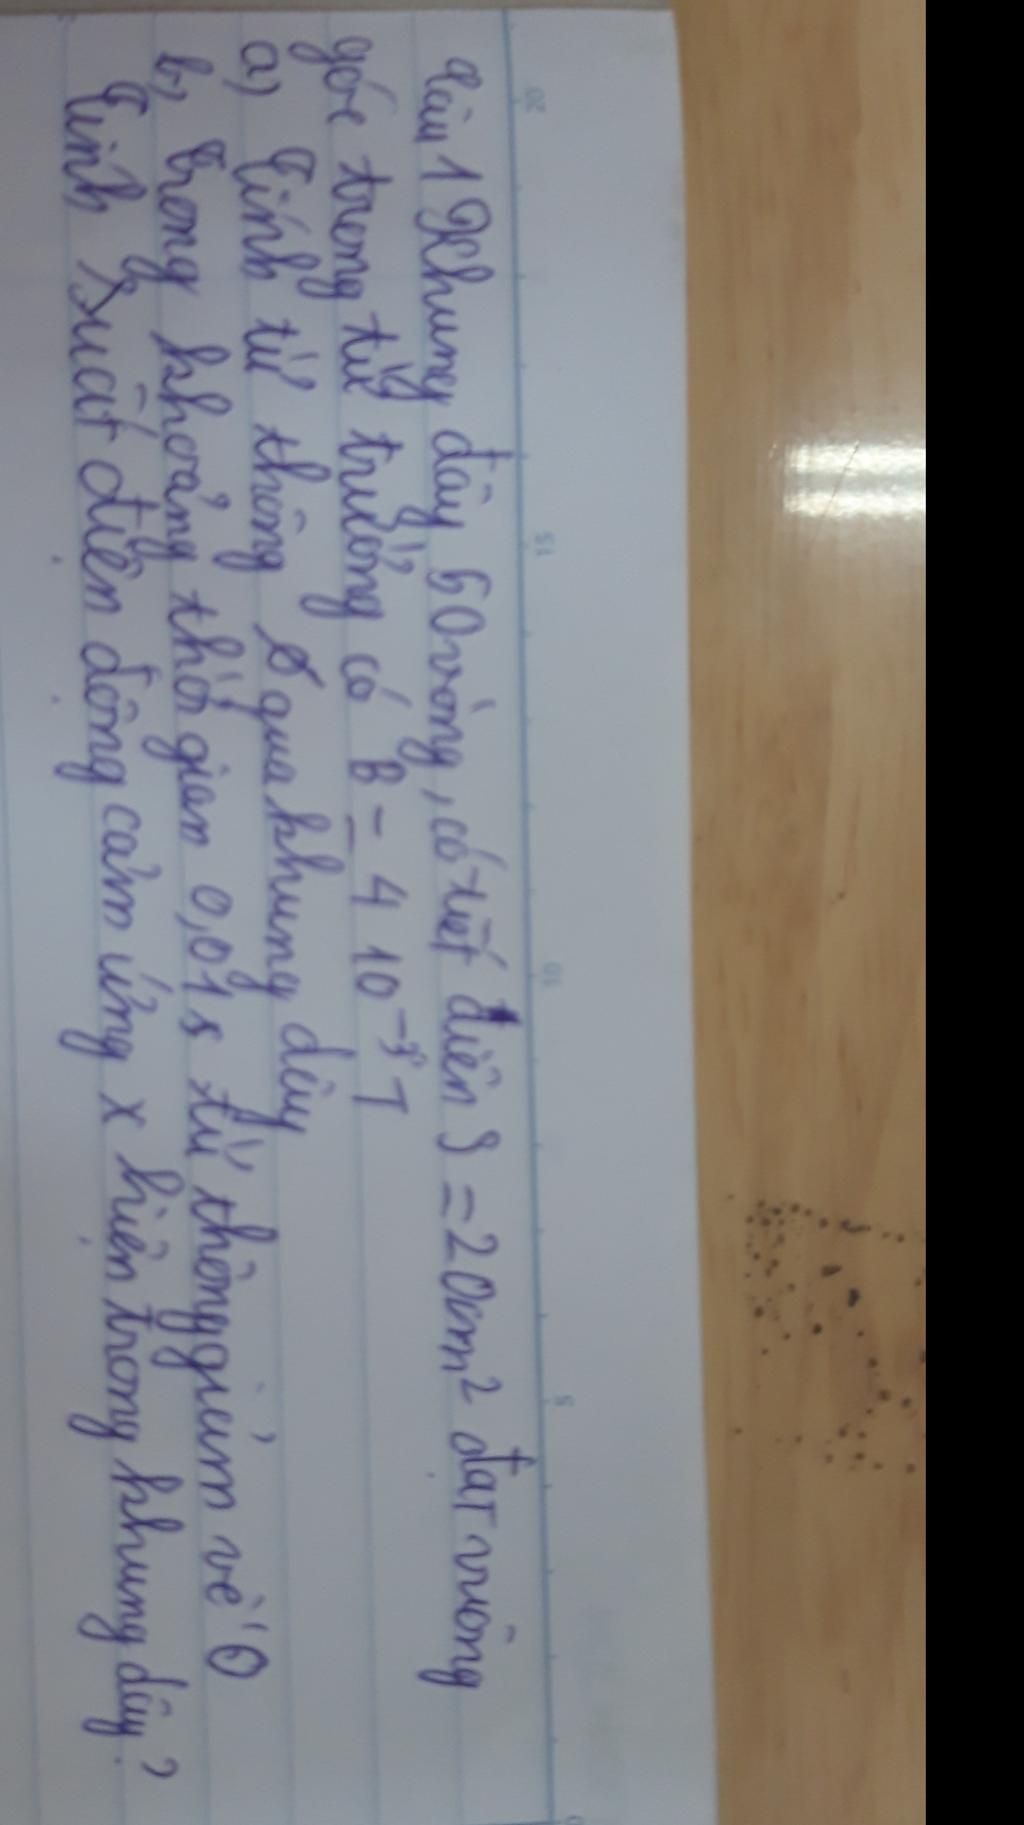 Câu 1 Khung dây 50 vòng, có tiết diện S = 20cm² đặt vuông
góc trong từ trường có B = 4 10⁻³ T
a) Tính từ thông qua khung dây
b) Trong khoảng thời gian 0,01s từ thông giảm về 0
Tính suất điện động cảm ứng x hiện trong khung dây?
20
15
10
5
0